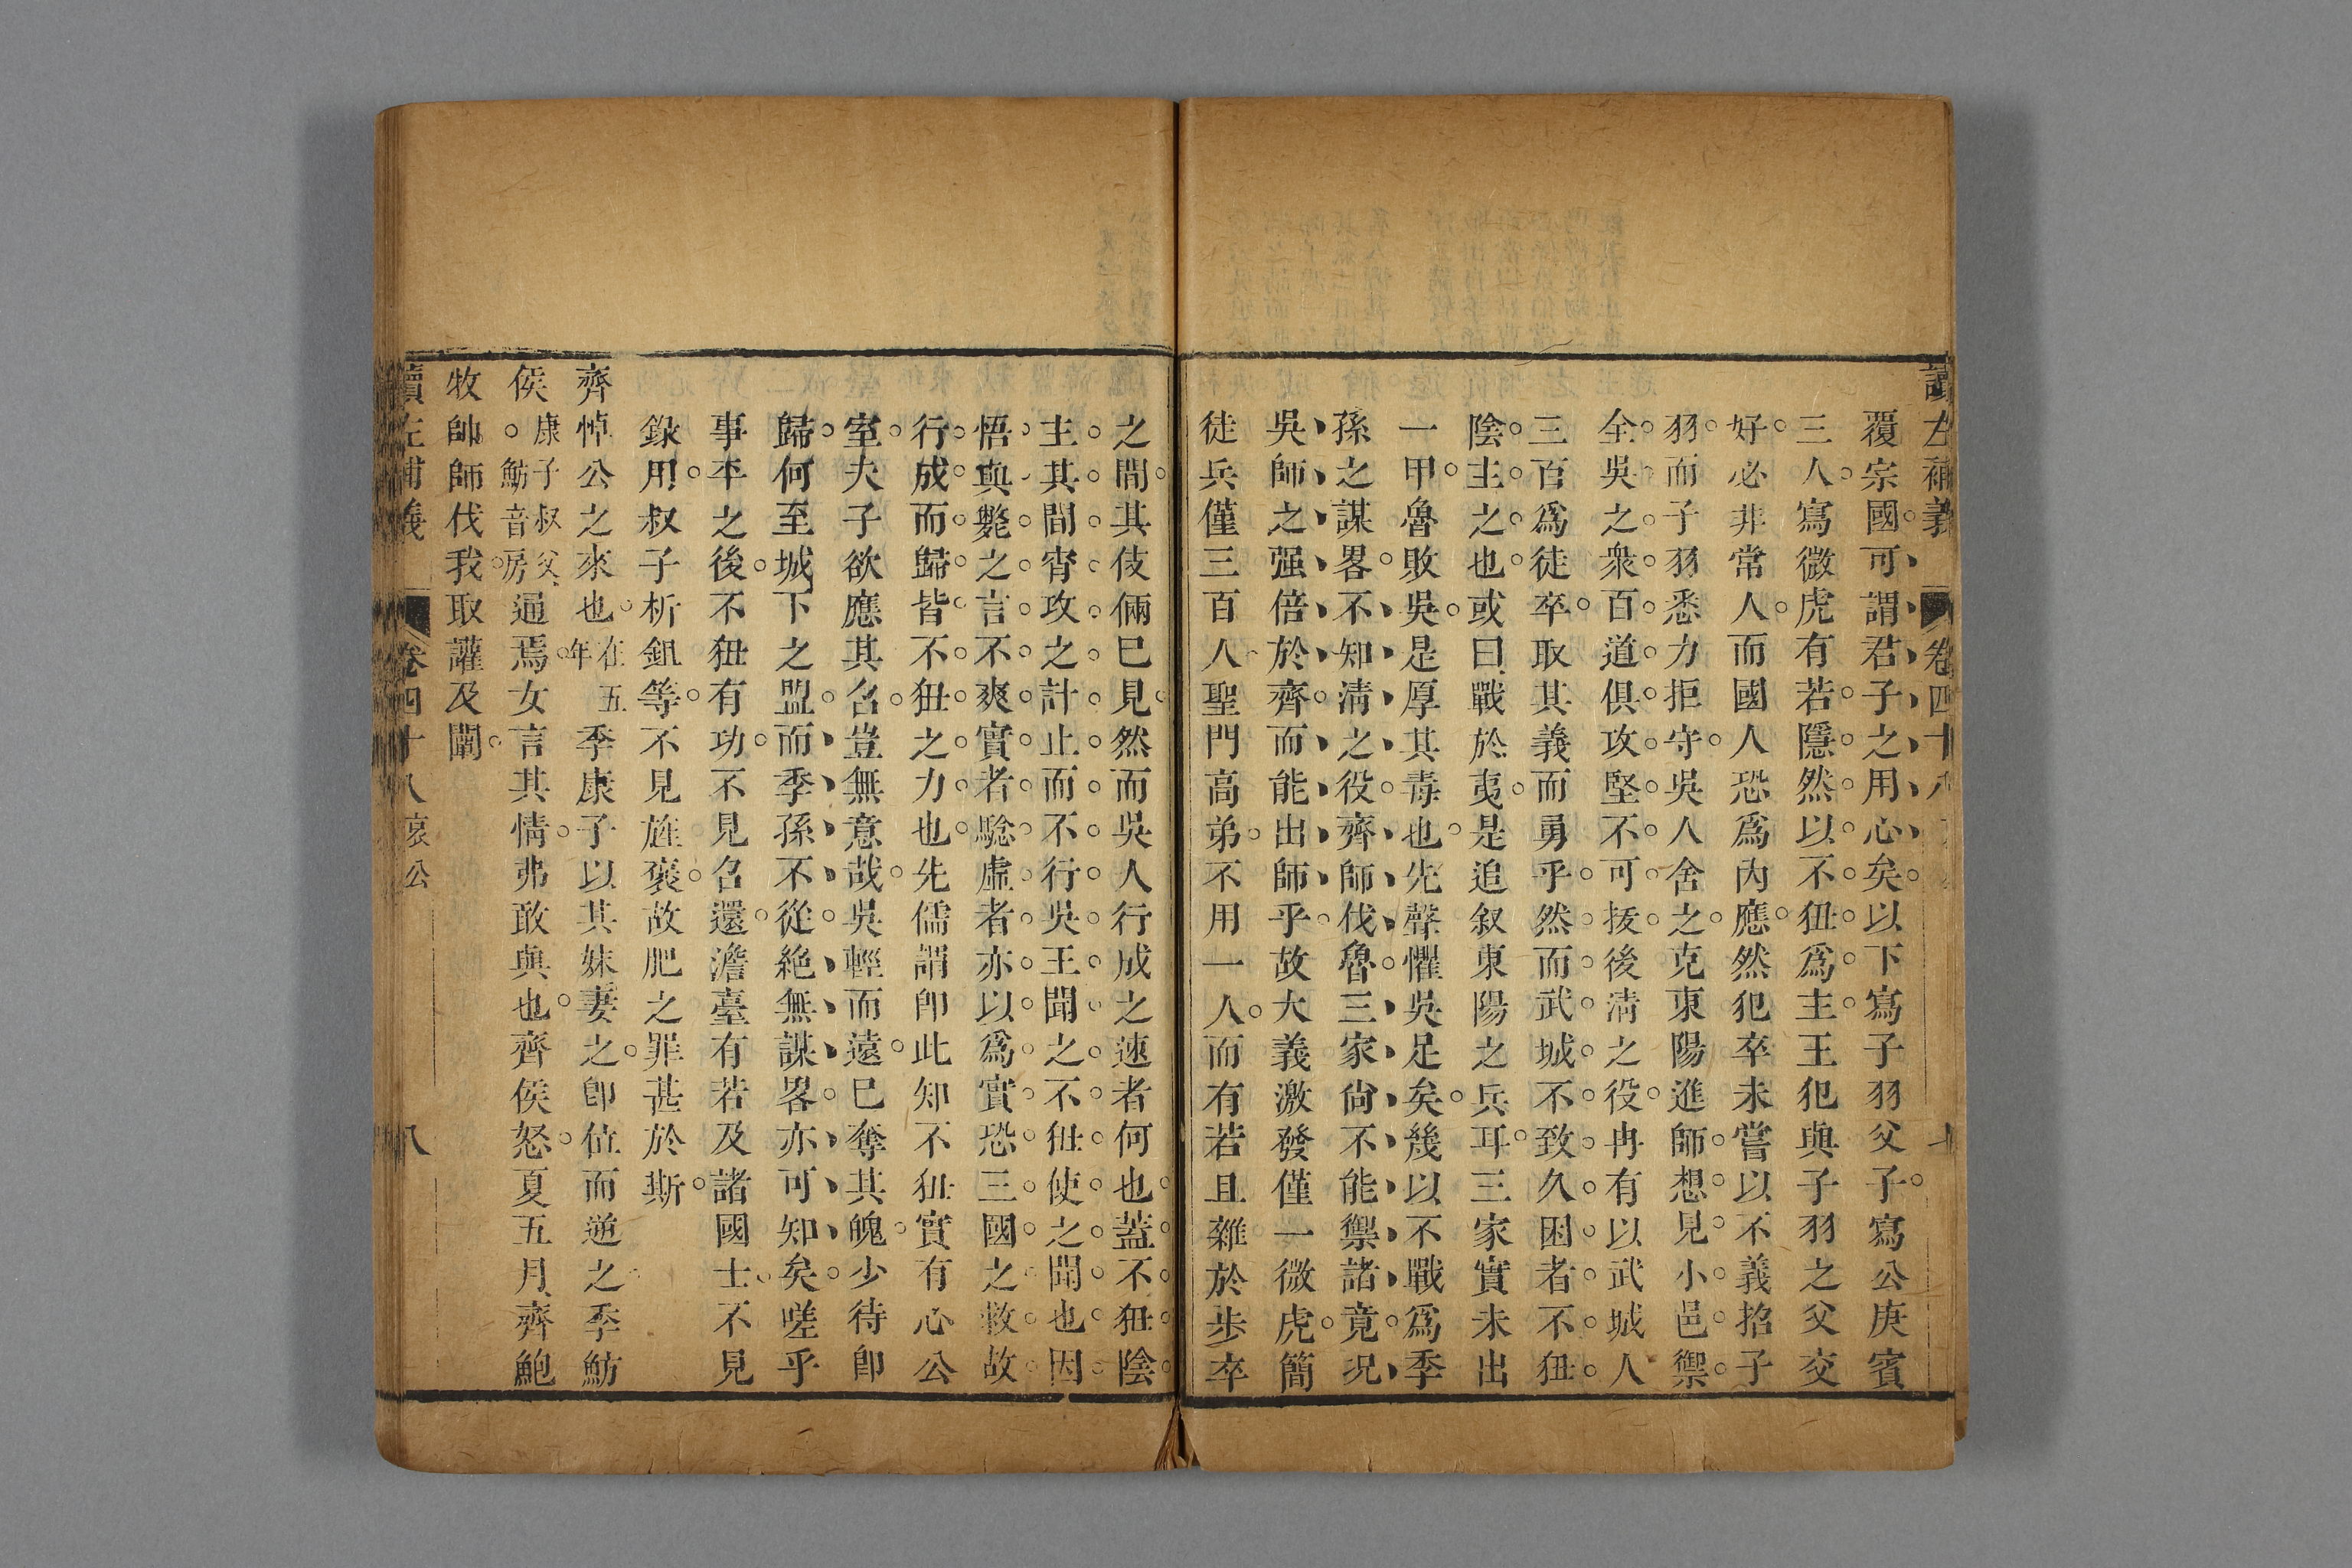 讀左補義 卷四十八
覆宗國可謂君子之用心矣以下寫子羽父子寫公庚賓
三人寫微虎有若隱然以不狃爲主王犯與子羽之父交
好必非常人而國人恐爲內應然犯卒未嘗以不義招子
羽而子羽悉力拒守吳人舍之克東陽進師想見小邑禦
全吳之衆百道俱攻堅不可拔後淸之役冉有以武城人
三百爲徒卒取其義而勇乎然而武城不致久困者不狃
陰主之也或曰戰於夷是追叙東陽之兵耳三家實未出
一甲魯敗吳是厚其毒也先聲懼吳足矣幾以不戰爲季
孫之謀畧不知淸之役齊師伐魯三家尙不能禦諸竟况
吳師之强倍於齊而能出師乎故大義激發僅一微虎簡
徒兵僅三百人聖門高弟不用一人而有若且雜於步卒
之間其伎倆已見然而吳人行成之速者何也蓋不狃陰
主其間宵攻之計止而不行吳王聞之不狃使之聞也因
悟與斃之言不爽實者騐虛者亦以爲實恐三國之救故
行成而歸皆不狃之力也先儒謂卽此知不狃實有心公
室夫子欲應其召豈無意哉吳輕而遠已奪其魄少待卽
歸何至城下之盟而季孫不從絶無謀畧亦可知矣嗟乎
事平之後不狃有功不見召還澹臺有若及諸國士不見
錄用叔子析鉏等不見旌褒故肥之罪甚於斯
齊悼公之來也在五年季康子以其妹妻之卽位而逆之季魴
侯康子叔父魴音房通焉女言其情弗敢與也齊侯怒夏五月齊鮑
牧帥師伐我取讙及闡
讀左補義 卷四十八哀公 八